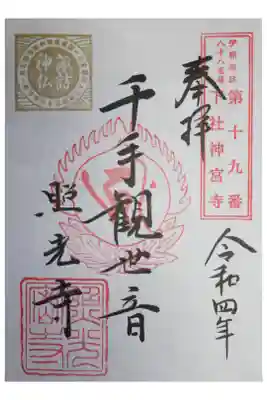 奉拝
伊那諏訪
八十八霊場
第十九番
下社神宮寺
千手観世音
照光寺
令和四年
諏訪
神仏